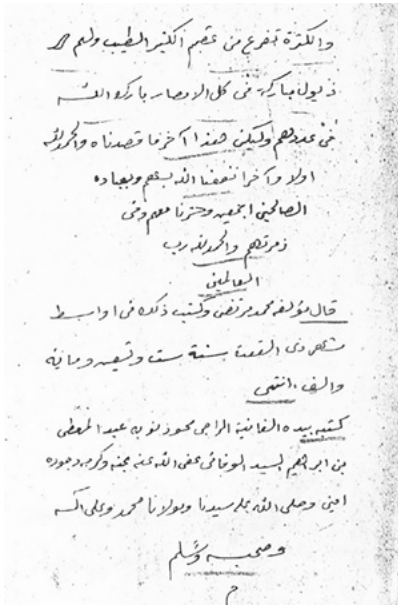 والكثرة تفرع من عقبهم الكثير الطيب ولهم
ذيول مباركة فى كل الامصار بارك الله
فى عددهم وليكن هذا آخر ما قصدناه والحمد لله
اولا وآخرا نفعنا الله بهم وبعباده
الصالحين اجمعين وحشرنا معهم وفى
زمرتهم والحمد لله رب
العالمين
قال مؤلفه محمد مرتضى وكتب ذلك فى اواسط
شهر ذى القعدة سنة ست وتسعين ومائة
والف . انتهى
كتبه بيده الفانية الراجى محمود بن عبد المعطى
بن ابراهيم السيد الوفائى عفى الله عنه بمنه وكرمه وجوده
امين وصلى الله على سيدنا ومولانا محمد وعلى آله
وصحبه وسلم
م